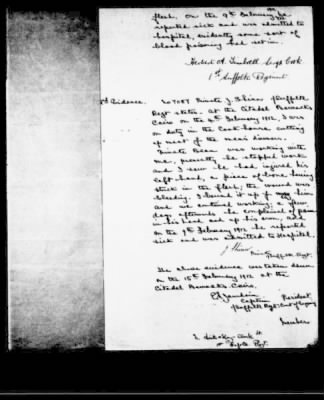 flesh, on the 9th February he
reported sick and was admitted to
hospital, evidently some sort of
blood poisoning had set in.
Sergt Cook
1st Suffolk Regiment
Evidence. No 7057 Private J. Suffolk
Regt states, at the Citadel Barracks
Cairo on the February 1912, I was
on duty in the Cook house cutting
up meat for the men's dinners.
Private was working with
me, presently he stopped work
and I saw he had injured his
left hand, a piece of bone having
stuck in the flesh; the wound was
bleeding. I bound it up for him
and we continued working; a few
days afterwards he complained of pain
in his hand and up his arm, and
on the 9th February 1912 he reported
sick and was admitted to Hospital.
Suffolk Regt.
The above evidence was taken down
on the 15th February 1912 at the
Citadel Barracks Cairo.
Captain President
Suffolk Regt Court of Enquiry
Members